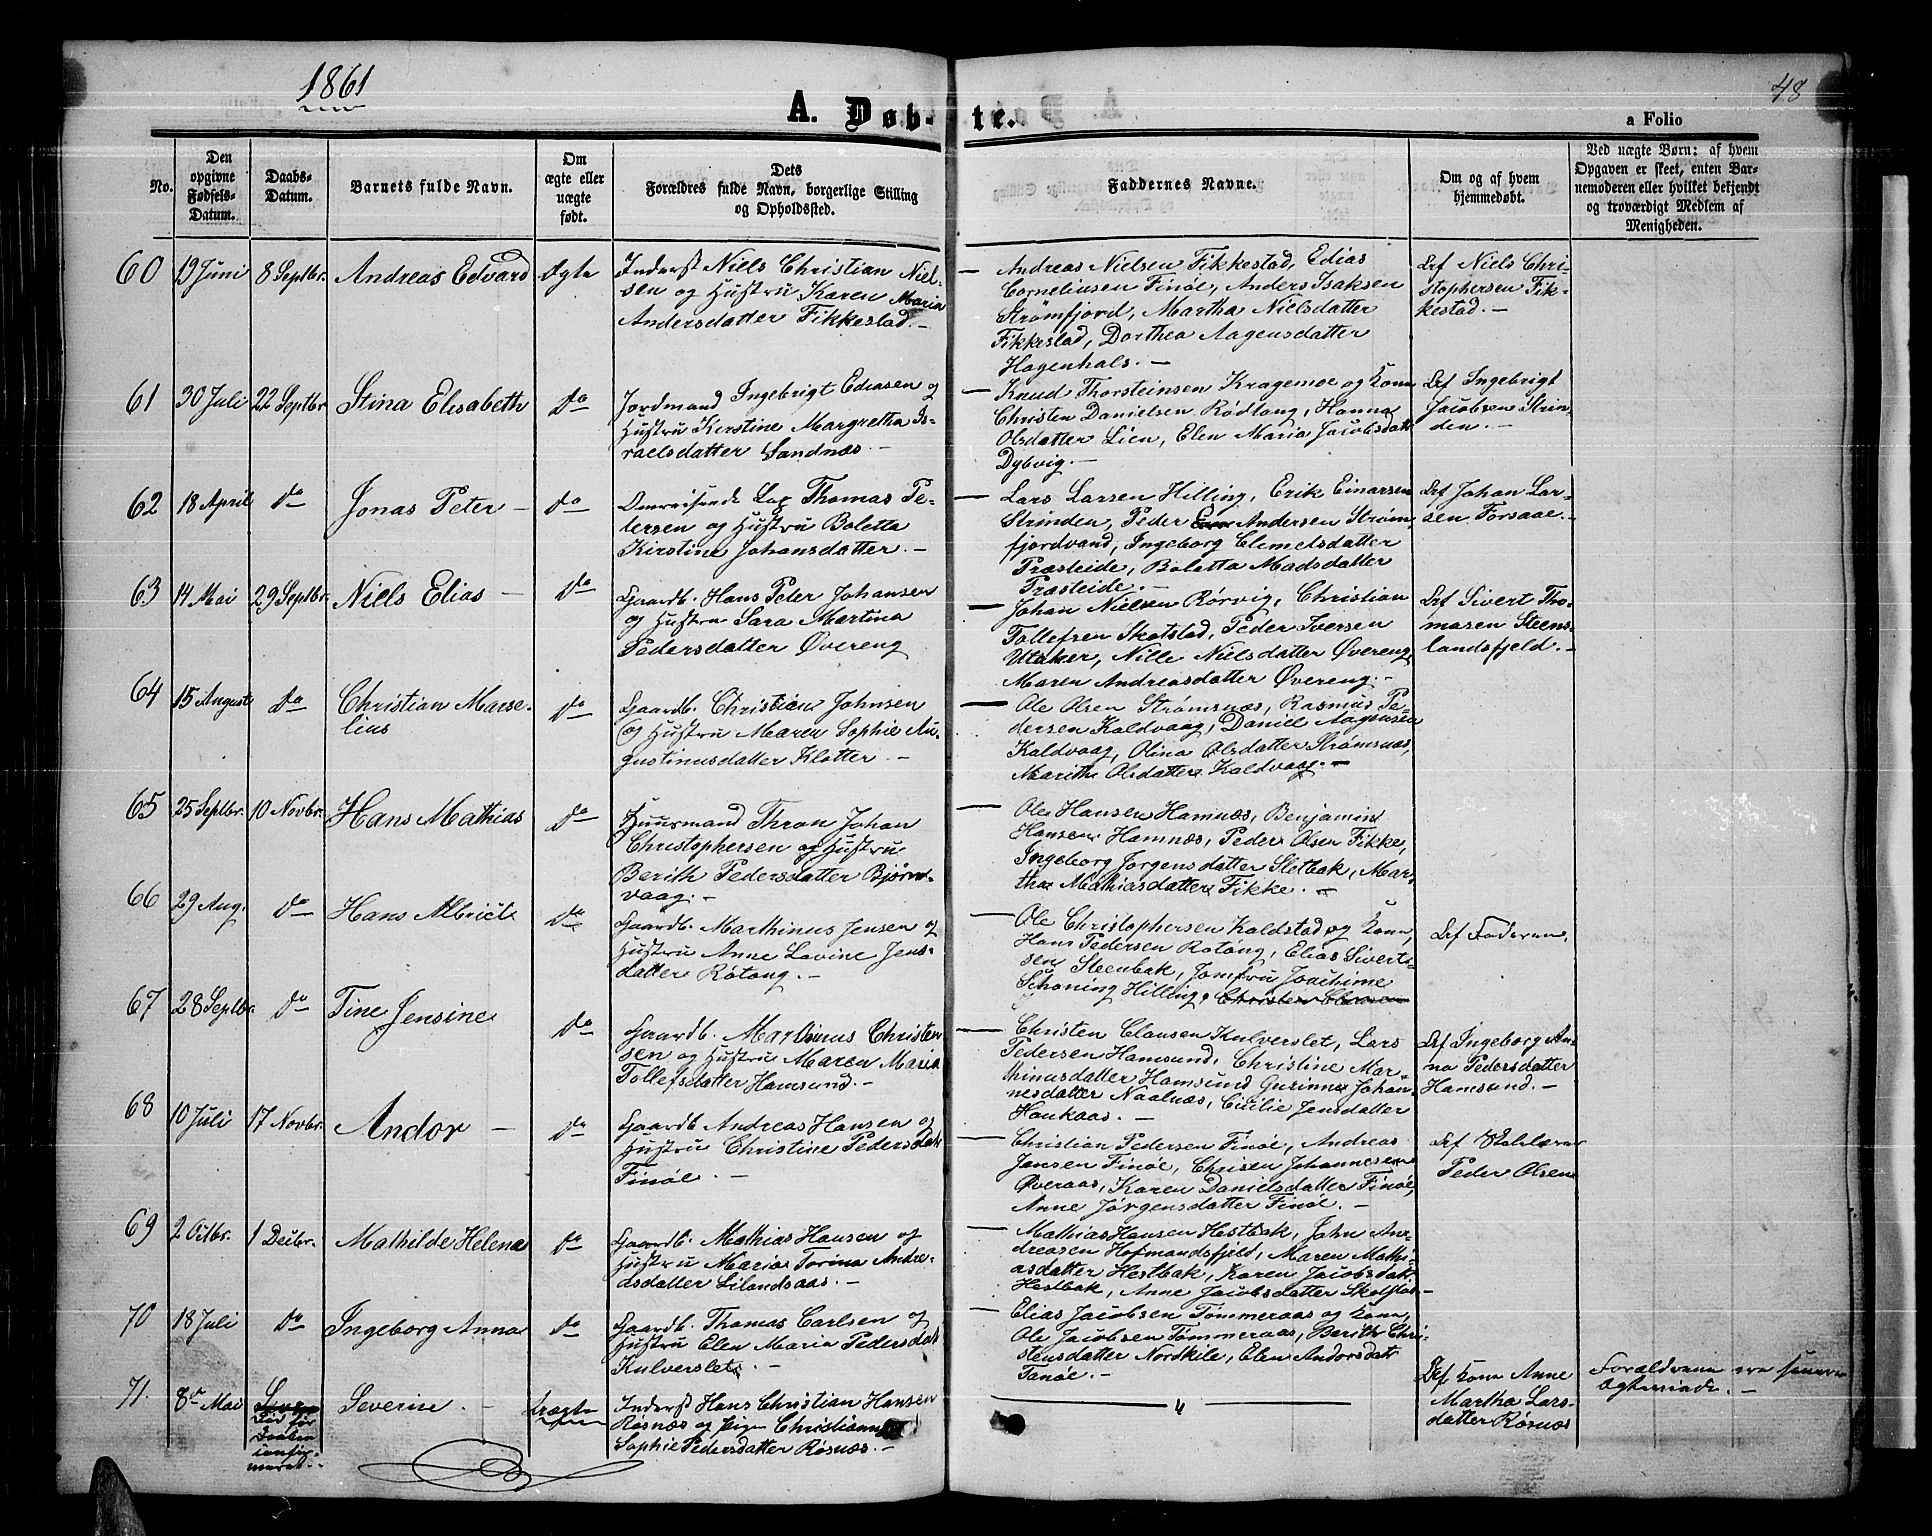 1861
48
A. Døb-te.
a Folio
No.
Den
opgivne
Fødsels-
Datum.
Daabs-
Datum.
Barnets fulde Navn.
Om
ægte eller
uægte
født.
Dets
Forældres fulde Navn, borgerlige Stilling
og Opholdssted.
Faddernes Navne.
Om og af hvem
hjemmedøbt.
Ved uægte Børn; af hvem
Opgaven er skeet, enten Bar-
nemoderen eller hvilket bekjendt
og troværdigt Medlem af
Menigheden.
60 19 Juni 8 Septbr. Andreas Edvard ægte
Inderst Niels Christian Niel-
sen og Hustru Karen Maria
Andersdatter Fikkestad. –
– Andreas Nielsen Fikkestad, Edias
Corneliusen Finöe, Anders Isaksen
Strömfjord, Martha Nielsdatter
Fikkestad, Dorthea Aagensdatter
Hagenhals. –
Niels Chri-
stophersen Fik-
kestad. –
61 30 Juli 22 Septbr. Stina Elisabeth do
Jordmand Ingebrigt Ediasen og
Hustru Kirstine Margretha Is-
raelsdatter Sandnæs –
– Knud Thorsteinsen Kragemoe og Kone
Christen Danielsen Rödtang, Hanna
Olsdatter Lien, Elen Maria Jacobsdatt
Dybvig. –
Ingebrigt
Jacobsen Strin-
den. –
62 18 April do Jonas Peter – do
Omreisende Lap Thomas Pe-
tersen og Hustru Boletta
Kirstine Johansdatter. –
– Lars Larsen Hilling, Erik Einarsen
Strinden, Peder Andersen Ström-
fjordvand, Ingeborg Clemetsdatter
Præsteide, Boletta Madsdatter
Præsteide. –
Johan Lar-
sen Forsaae. –
63 14 Mai 29 Septbr. Niels Elias – do
Gaardb. Hans Peter Johansen
og Hustru Sara Martina
Pedersdatter Övereng
– Johan Nielsen Rörvig, Christian
Tollefsen Skotstad, Peder Iversen
Utaker, Nille Nielsdatter Övereng
Maren Andreasdatter Övereng. –
Sivert Tho-
masen Steens-
landsfjeld. –
64 15 August do Christian Marse-
lius do
Gaardb. Christian Johnsen
og Hustru Maren Sophie Au-
gustinusdatter Klotter. –
– Ole Olsen Strömsnæs, Rasmus Pe-
dersen Kaldvaag, Daniel Aagensen
Kaldvaag, Olina Olsdatter Strömsnæs,
Marith Olsdatter Kaldvaag. –
65 25 Septbr. 10 Novbr. Hans Mathias do
Huusmand Thron Johan
Christophersen og Hustru
Berith Pedersdatter Björns-
vaag. –
– Ole Hansen Hamnæs, Benjamin
Hansen Hamnæs, Peder Olsen Fikke,
Ingeborg Jörgensdatter Sletbak, Mar-
tha Mathiasdatter Fikke. –
66 29 Aug. do Hans Albricht do
Gaardb. Marthinus Jensen og
Hustru Anne Lovine Jens-
datter Rötang. –
– Ole Christophersen Kaldstad og Kone,
Hans Pedersen Rotang, Elias Sivert-
sen Steenbak, Jomfru Joachime
Schöning Hilling, Christen Clausen
Faderen.
67 28 Septbr do Tine Jensine do
Gaardb. Marthinus Christen
sen og Hustru Maren Maria
Tollefsdatter Hamsund. –
– Christen Clausen Kulverslet, Lars
Pedersen Hamsund, Christine Mar-
thinusdatter Hamsund, Gurinna Johan
nesdatter Naalnæs, Cicilie Jensdatter
Haukaas. –
Ingeborg An-
na Pedersdatter
Hamsund. –
68 10 Juli 17 Novbr. Andor – do
Gaardb Andreas Hansen og
Hustru Christine Pedersdatt
Finöe. –
– Christian Pedersen Finöe, Andreas
Jensen Finöe, Chrisen Johannesen
Överaas, Karen Danielsdatter Finöe,
Anne Jörgensdatter Finöe. –
Peder Olsen
69 2 Octbr. 1 Decbr. Mathilde Helena do
Gaardb. Mathias Hansen og
Hustru Marias Torina Andre-
asdatter Lilandsaas. –
– Mathias Hansen Hestbak, John An-
dreasen Hofmandsfjeld, Maren Mathi-
asdatter Hestbak, Karen Jacobsdatt
Hestbak, Anne Jacobsdatter
70 18 Juli do Ingeborg Anna do
Gaardb. Thomas Carlsen og
Hustru Elen Maria Pedersdatt
Kulverslet. –
– Elias Jacobsen Tömmeraas og Kone,
Ole Jacobsen Tömmeraas, Berith Chri-
stensdatter Nordkile, Elen Andorsdatt
Tanöe. –
71. 8de Mai
Död för
Daaben
Severine. – uægte
Inderst Hans Christian Hansen
Rösnæs og Pigen Christianna
Sophie Pedersdatter Rösnæs. –
Kone Anne
Martha Lars-
datter Rösnæs
Forældrene ere senere
Ægteviede. –